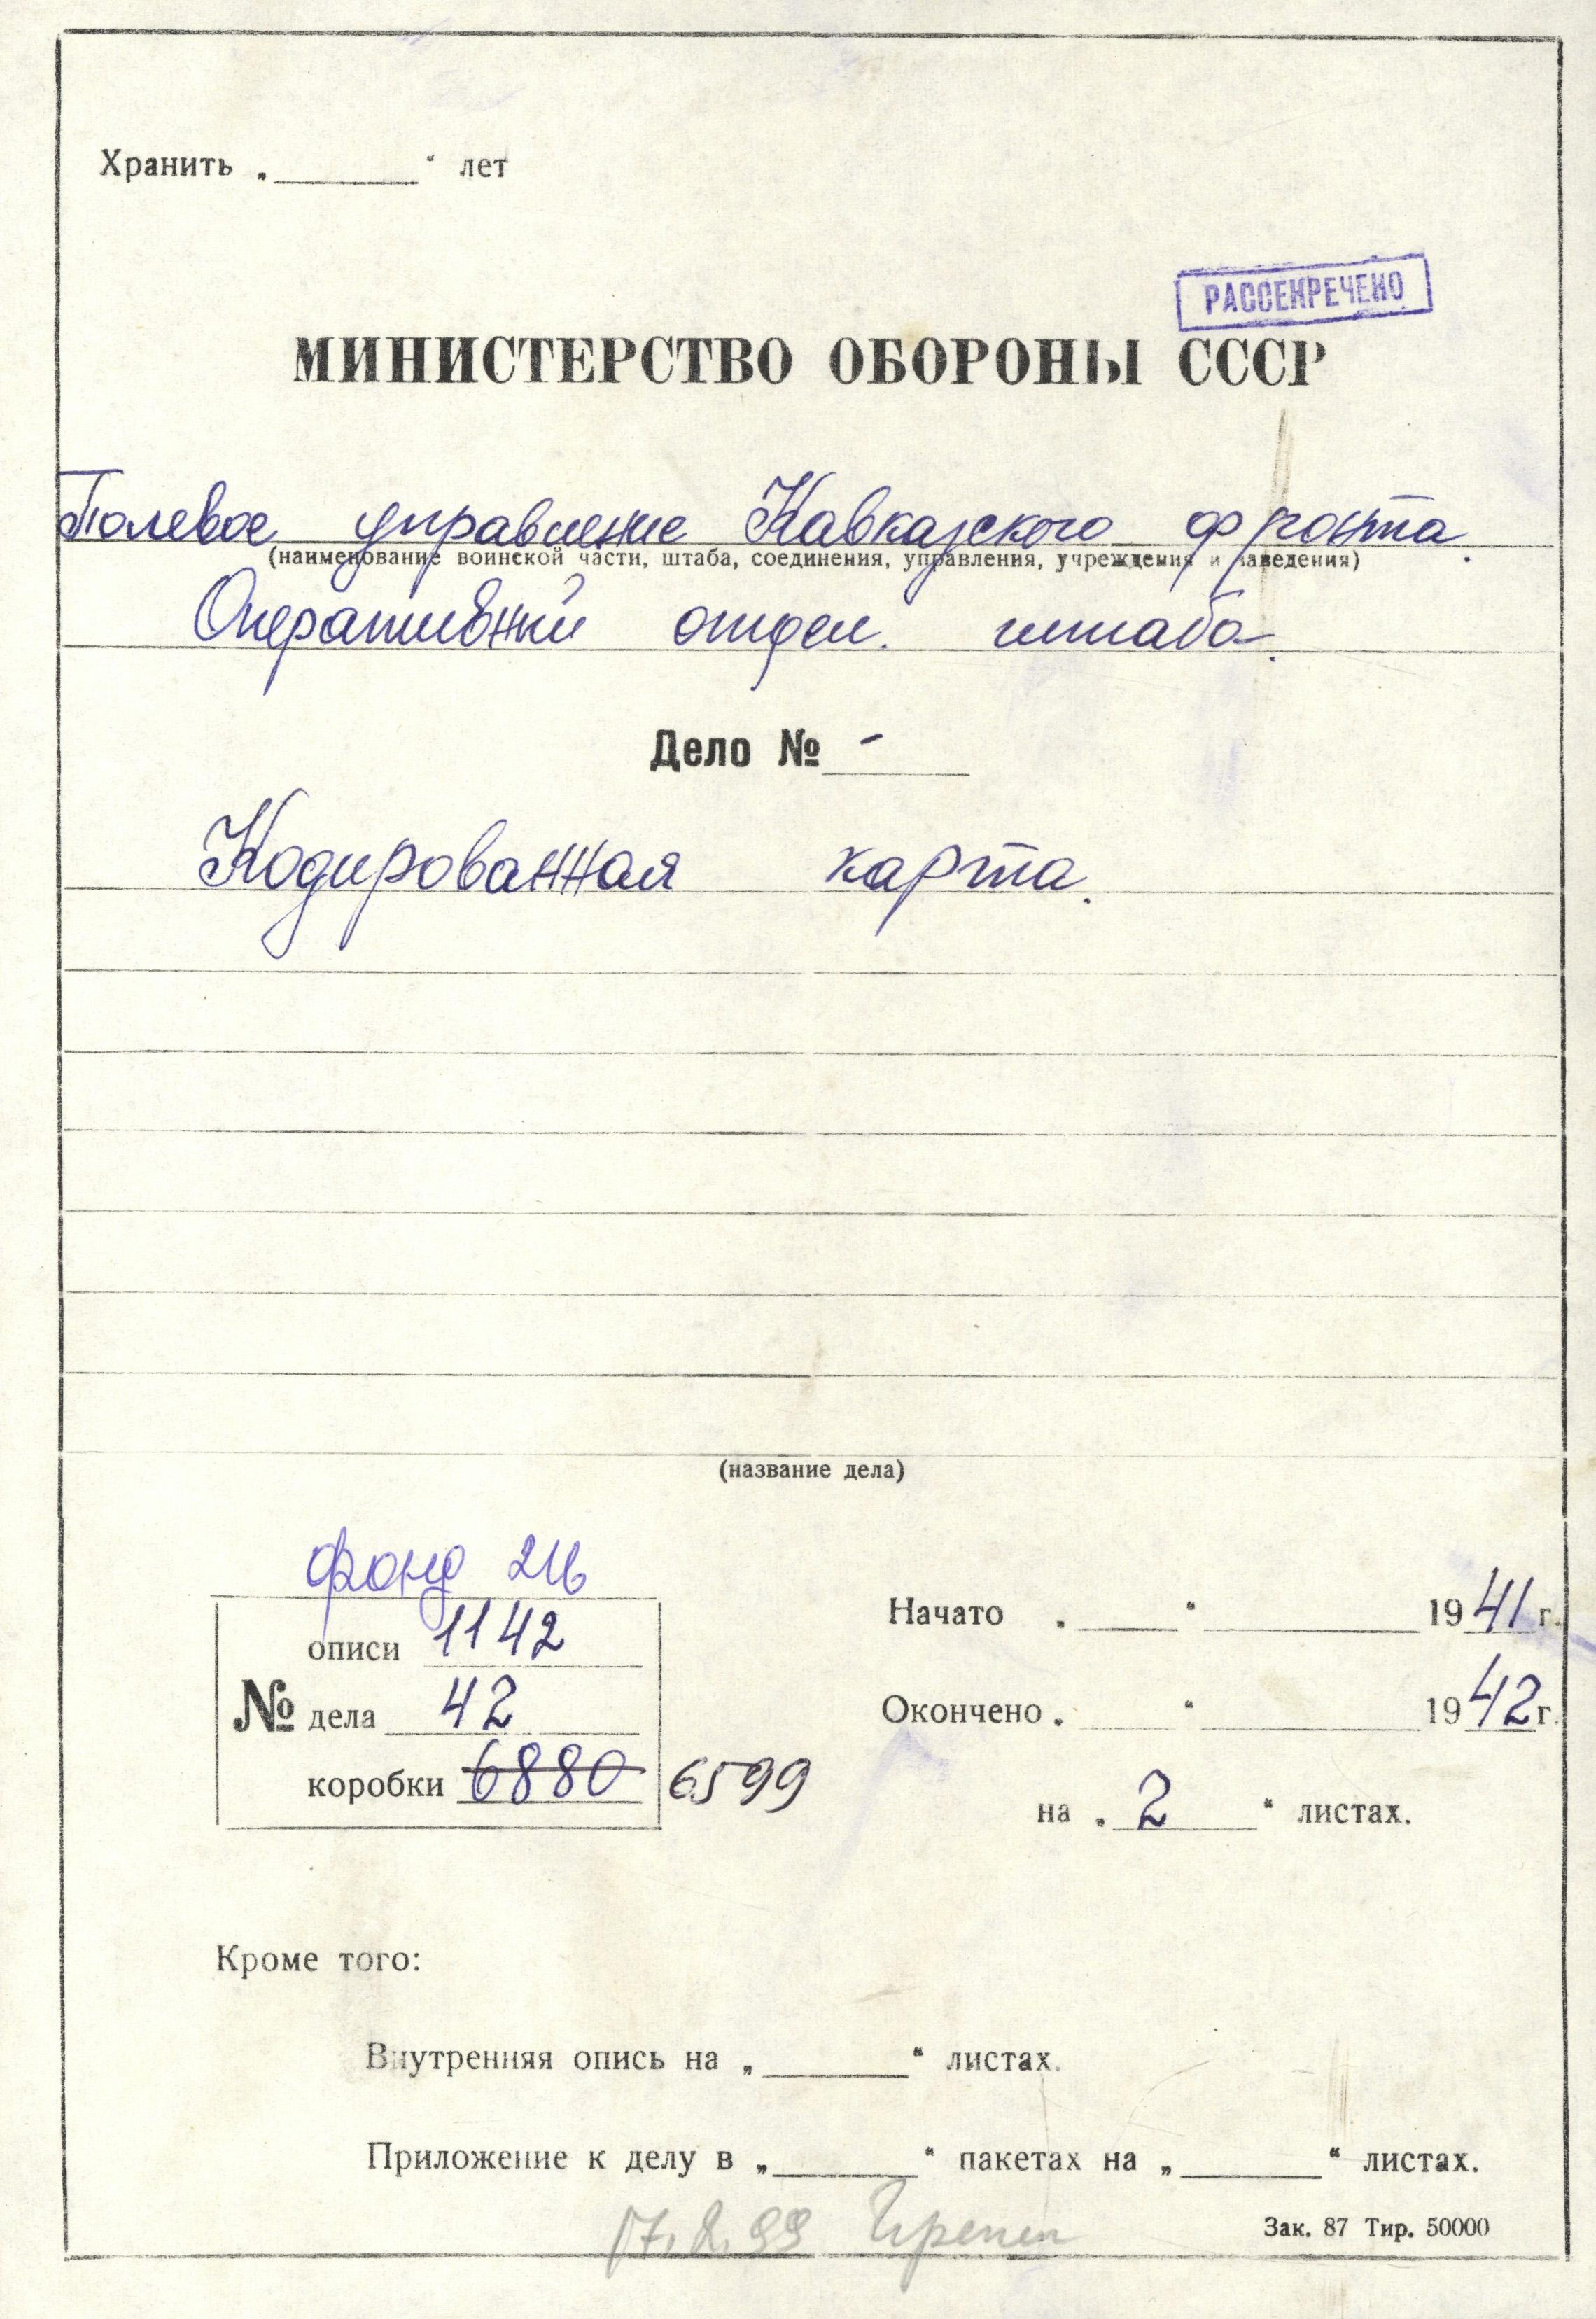 Хранить „ “ лет
РАССЕКРЕЧЕНО
МИНИСТЕРСТВО ОБОРОНЫ СССР
Полевое управление Кавказского фронта.
(наименование воинской части, штаба, соединения, управления, учреждения и заведения)
Оперативный отдел. штаба.
Дело № -
Кодированная карта.
(название дела)
фонд 216
описи 1142
№ дела 42
коробки 6880 6599
Начато „ “ 1941 г.
Окончено „ “ 1942 г.
на „ 2 “ листах.
Кроме того:
Внутренняя опись на „ “ листах.
Приложение к делу в „ “ пакетах на „ “ листах.
17.2.99
Зак. 87 Тир. 50000